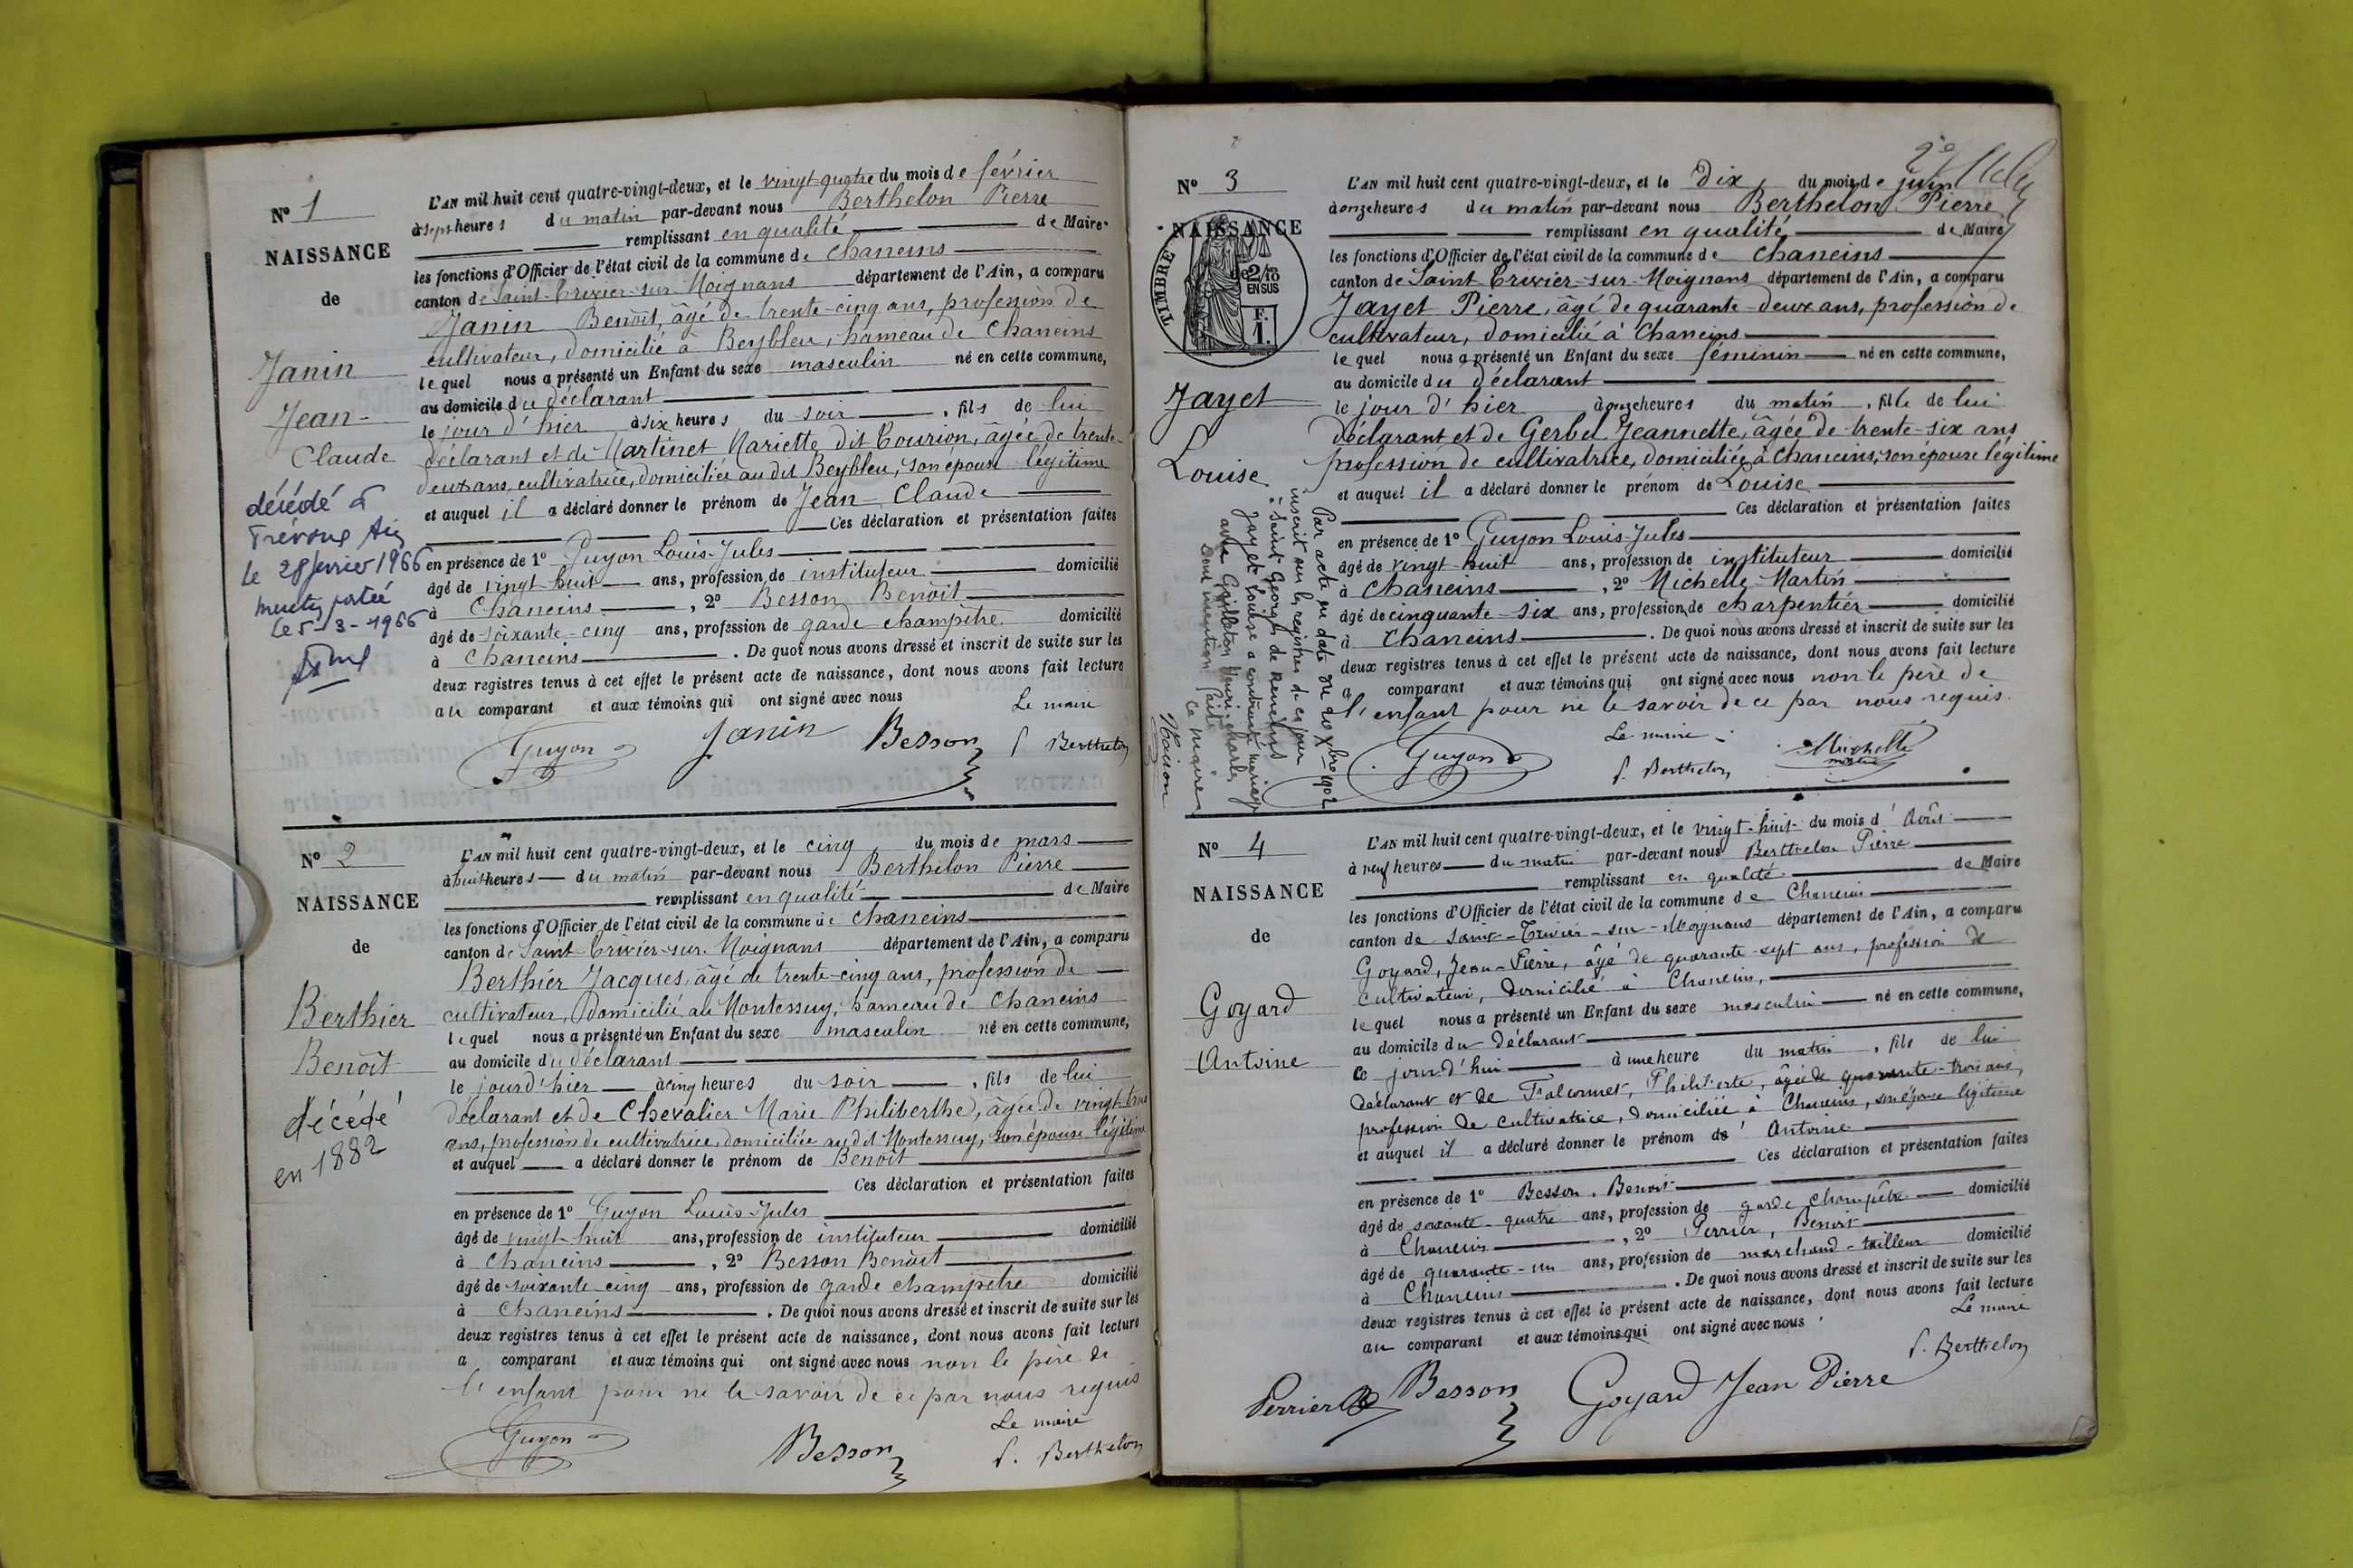 N° 1
NAISSANCE
de
Janin
Jean-
Claude
décédé à
Trévoux Ain
le 28 février 1966
mention portée
le 5-3-1966
L'AN mil huit cent quatre-vingt-deux, et le vingt quatre du mois de février
à sept heures du matin par-devant nous Berthelon Pierre
remplissant en qualité de Maire
les fonctions d'Officier de l'état civil de la commune de Chaneins
canton de Saint-Trivier-sur-Moignans département de l'Ain, a comparu
Janin Benoît, âgé de trente-cinq ans, profession de
cultivateur, domicilié à Beybleu, hameau de Chaneins
lequel nous a présenté un Enfant du sexe masculin né en cette commune,
au domicile du déclarant
le jour d'hier à six heures du soir, fils de lui
déclarant et de Martinet Mariette dit Tourion, âgée de trente-
deux ans, cultivatrice, domiciliée au dit Beybleu, son épouse légitime
et auquel il a déclaré donner le prénom de Jean-Claude
Ces déclaration et présentation faites
en présence de 1° Guyon Louis-Jules
âgé de vingt huit ans, profession de instituteur domicilié
à Chaneins, 2° Besson Benoît
âgé de soixante-cinq ans, profession de garde champêtre domicilié
à Chaneins. De quoi nous avons dressé et inscrit de suite sur les
deux registres tenus à cet effet le présent acte de naissance, dont nous avons fait lecture
au comparant et aux témoins qui ont signé avec nous
Le maire
Guyon Janin Besson P. Berthelon
N° 2
NAISSANCE
de
Berthier
Benoît
décédé
en 1882
L'AN mil huit cent quatre-vingt-deux, et le cinq du mois de mars
à huit heures du matin par-devant nous Berthelon Pierre
remplissant en qualité de Maire
les fonctions d'Officier de l'état civil de la commune de Chaneins
canton de Saint-Trivier-sur-Moignans département de l'Ain, a comparu
Berthier Jacques, âgé de trente-cinq ans, profession de
cultivateur, domicilié au Montessuy, hameau de Chaneins
lequel nous a présenté un Enfant du sexe masculin né en cette commune,
au domicile du déclarant
le jour d'hier à cinq heures du soir, fils de lui
déclarant et de Chevalier Marie Philiberthe, âgée de vingt-trois
ans, profession de cultivatrice, domiciliée au dit Montessuy, son épouse légitime
et auquel a déclaré donner le prénom de Benoît
Ces déclaration et présentation faites
en présence de 1° Guyon Louis-Jules
âgé de vingt-huit ans, profession de instituteur domicilié
à Chaneins, 2° Besson Benoît
âgé de soixante-cinq ans, profession de garde champêtre domicilié
à Chaneins. De quoi nous avons dressé et inscrit de suite sur les
deux registres tenus à cet effet le présent acte de naissance, dont nous avons fait lecture
a comparant et aux témoins qui ont signé avec nous non le père de
l'enfant pour ne le savoir de ce par nous requis
Le maire
Guyon Besson P. Berthelon
2e
N° 3
NAISSANCE
TIMBRE
2/10
EN SUS
F.
1.
Jayet
Louise
Par acte en date du 20 Xbre 1902
inscrit sur les registres de ce jour
à Saint Georges de Reneins
Jayet Louise a contracté mariage
avec Guilleton Henri-Charles
Dont mention faite
Le maire
L'AN mil huit cent quatre-vingt-deux, et le Dix du mois de juin
à onze heures du matin par-devant nous Berthelon Pierre
remplissant en qualité de Maire
les fonctions d'Officier de l'état civil de la commune de Chaneins
canton de Saint Trivier-sur-Moignans département de l'Ain, a comparu
Jayet Pierre, âgé de quarante-deux ans, profession de
cultivateur, domicilié à Chaneins
lequel nous a présenté un Enfant du sexe féminin né en cette commune,
au domicile du déclarant
le jour d'hier à onze heures du matin, fille de lui
déclarant et de Gerbel Jeannette, âgée de trente-six ans
profession de cultivatrice, domiciliée à Chaneins, son épouse légitime
et auquel il a déclaré donner le prénom de Louise
Ces déclaration et présentation faites
en présence de 1° Guyon Louis-Jules
âgé de vingt-huit ans, profession de instituteur domicilié
à Chaneins, 2° Michelle Martin
âgé de cinquante-six ans, profession de charpentier domicilié
à Chaneins. De quoi nous avons dressé et inscrit de suite sur les
deux registres tenus à cet effet le présent acte de naissance, dont nous avons fait lecture
a comparant et aux témoins qui ont signé avec nous non le père de
l'enfant pour ne le savoir de ce par nous requis.
Le maire
Guyon P. Berthelon Michelle
N° 4
NAISSANCE
de
Goyard
Antoine
L'AN mil huit cent quatre-vingt-deux, et le vingt-huit du mois d'Août
à neuf heures du matin par-devant nous Berthelon Pierre
remplissant en qualité de Maire
les fonctions d'Officier de l'état civil de la commune de Chaneins
canton de Saint-Trivier-sur-Moignans département de l'Ain, a comparu
Goyard, Jean-Pierre, âgé de quarante-sept ans, profession de
cultivateur, domicilié à Chaneins,
lequel nous a présenté un Enfant du sexe masculin né en cette commune,
au domicile du déclarant
ce jourd'hui à une heure du matin, fils de lui
déclarant et de Falconnet, Philiberte, âgée de quarante-trois ans,
profession de cultivatrice, domiciliée à Chaneins, son épouse légitime
et auquel il a déclaré donner le prénom d'Antoine
Ces déclaration et présentation faites
en présence de 1° Besson, Benoit
âgé de soixante-quatre ans, profession de garde champêtre domicilié
à Chaneins, 2° Perrier, Benoit
âgé de quarante-un ans, profession de marchand-tailleur domicilié
à Chaneins. De quoi nous avons dressé et inscrit de suite sur les
deux registres tenus à cet effet le présent acte de naissance, dont nous avons fait lecture
au comparant et aux témoins qui ont signé avec nous
Le maire
P. Berthelon
Perrier B Besson Goyard Jean Pierre